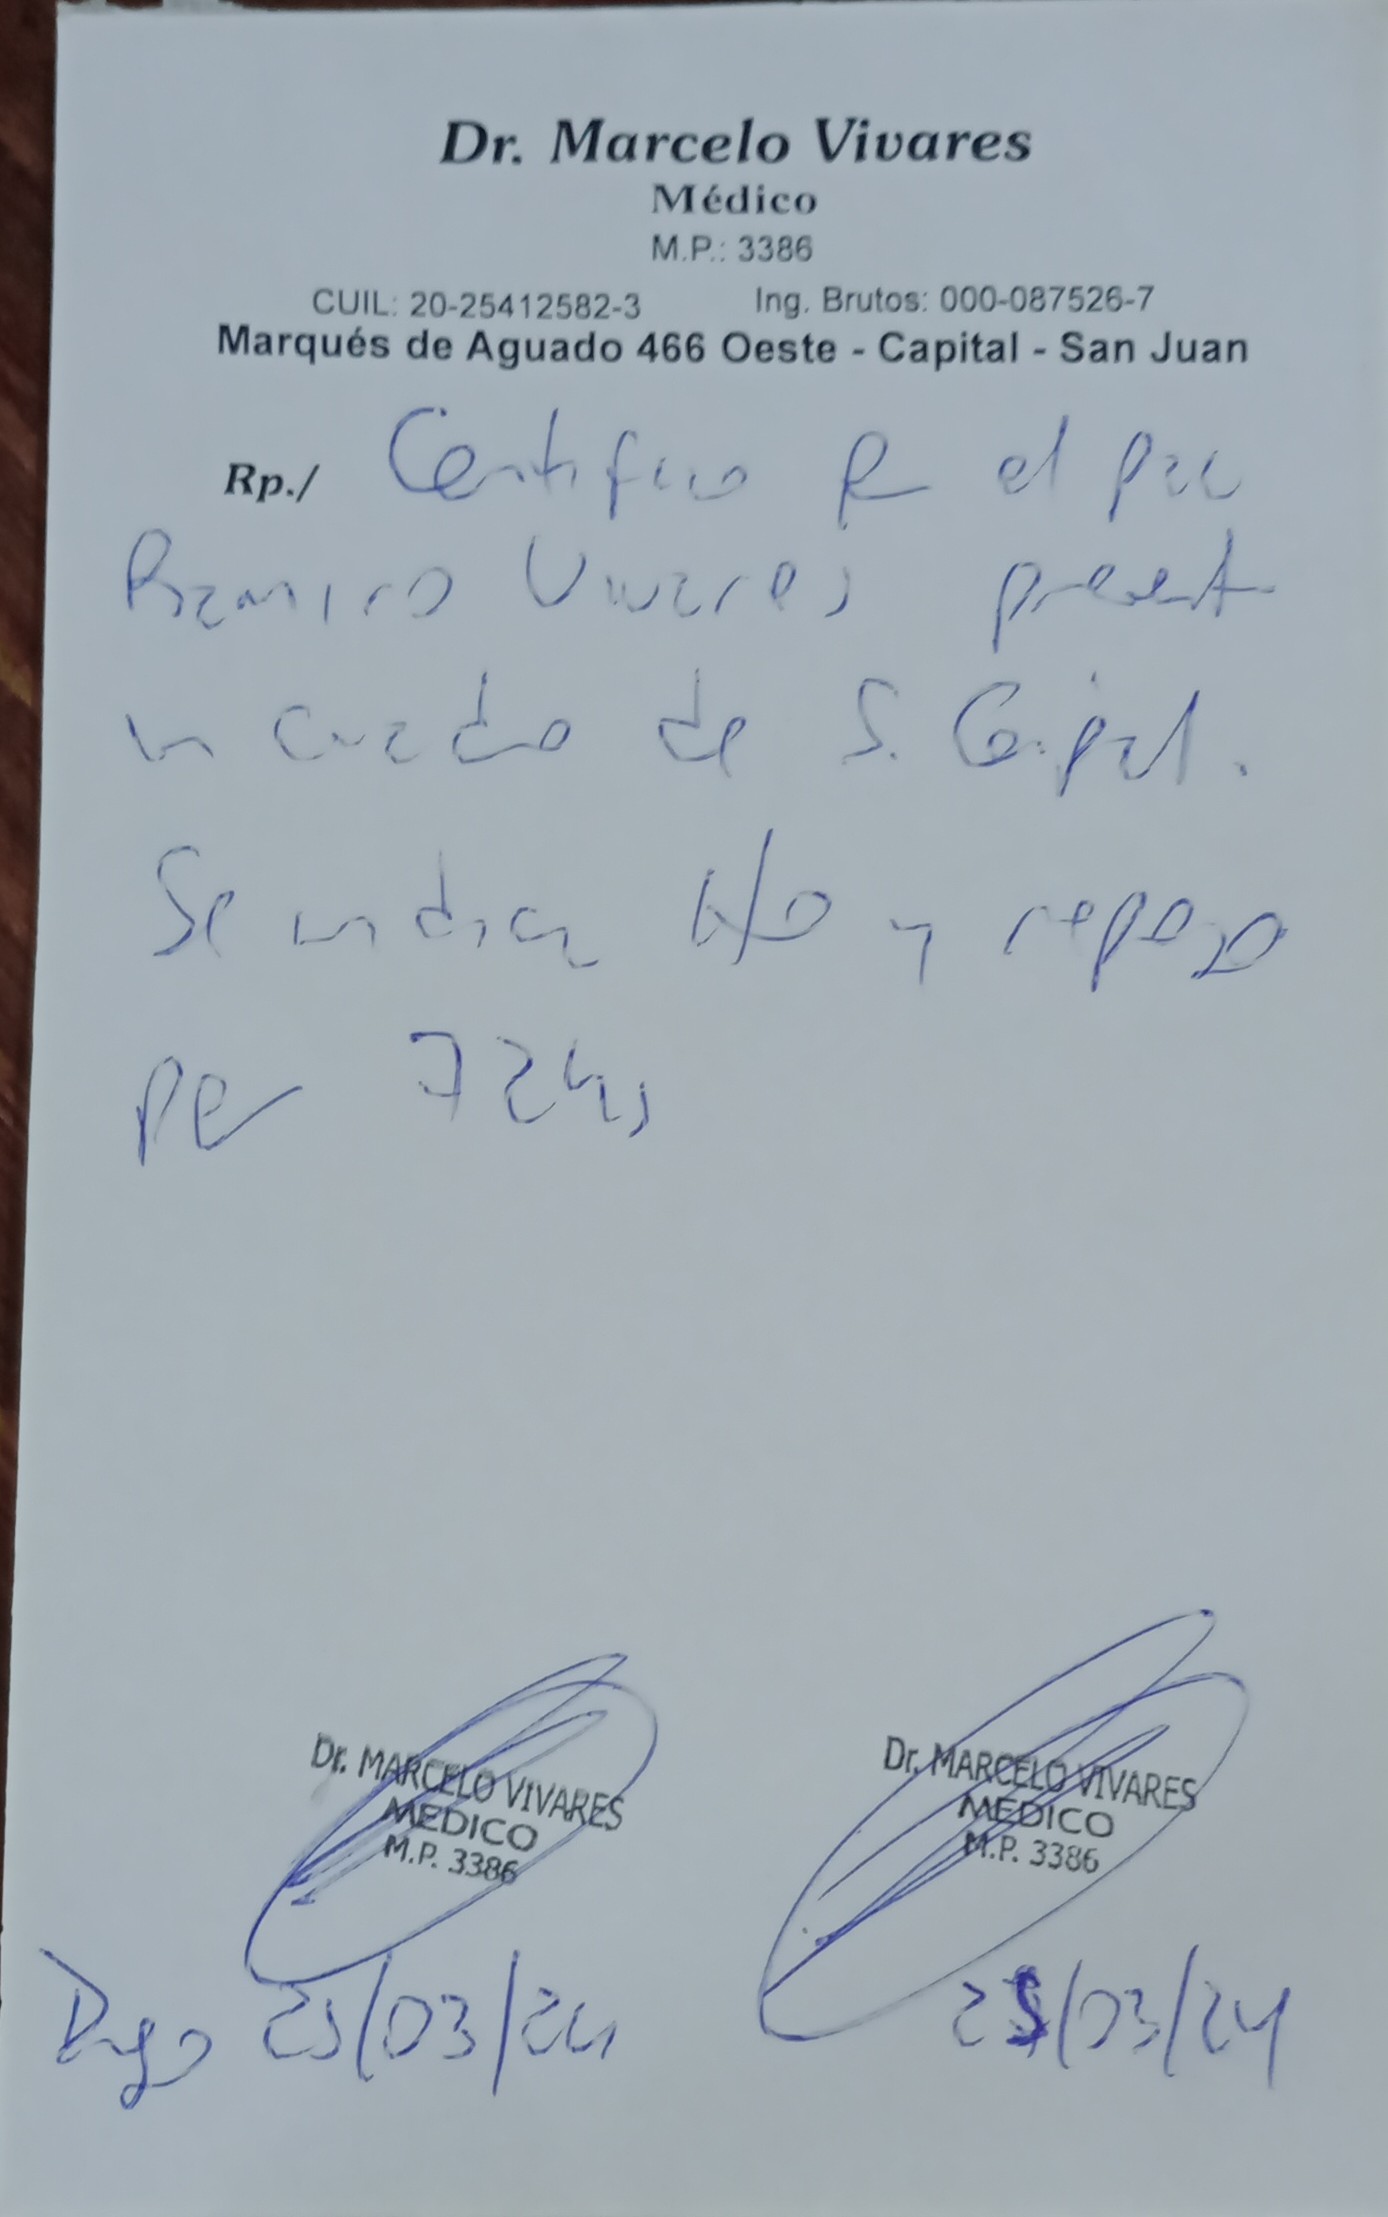 Dr. Marcelo Vivares
Médico
M.P.: 3386
CUIL: 20-25412582-3 Ing. Brutos: 000-087526-7
Marqués de Aguado 466 Oeste - Capital - San Juan
Rp./ Certifico q el pac
Ramiro Vivares present
un cuadro de S. Gripal.
Se indica tto y reposo
por 72hs
Dr. MARCELO VIVARES
MEDICO
M.P. 3386
Dr. MARCELO VIVARES
MEDICO
M.P. 3386
Dgo 25/03/24 25/03/24